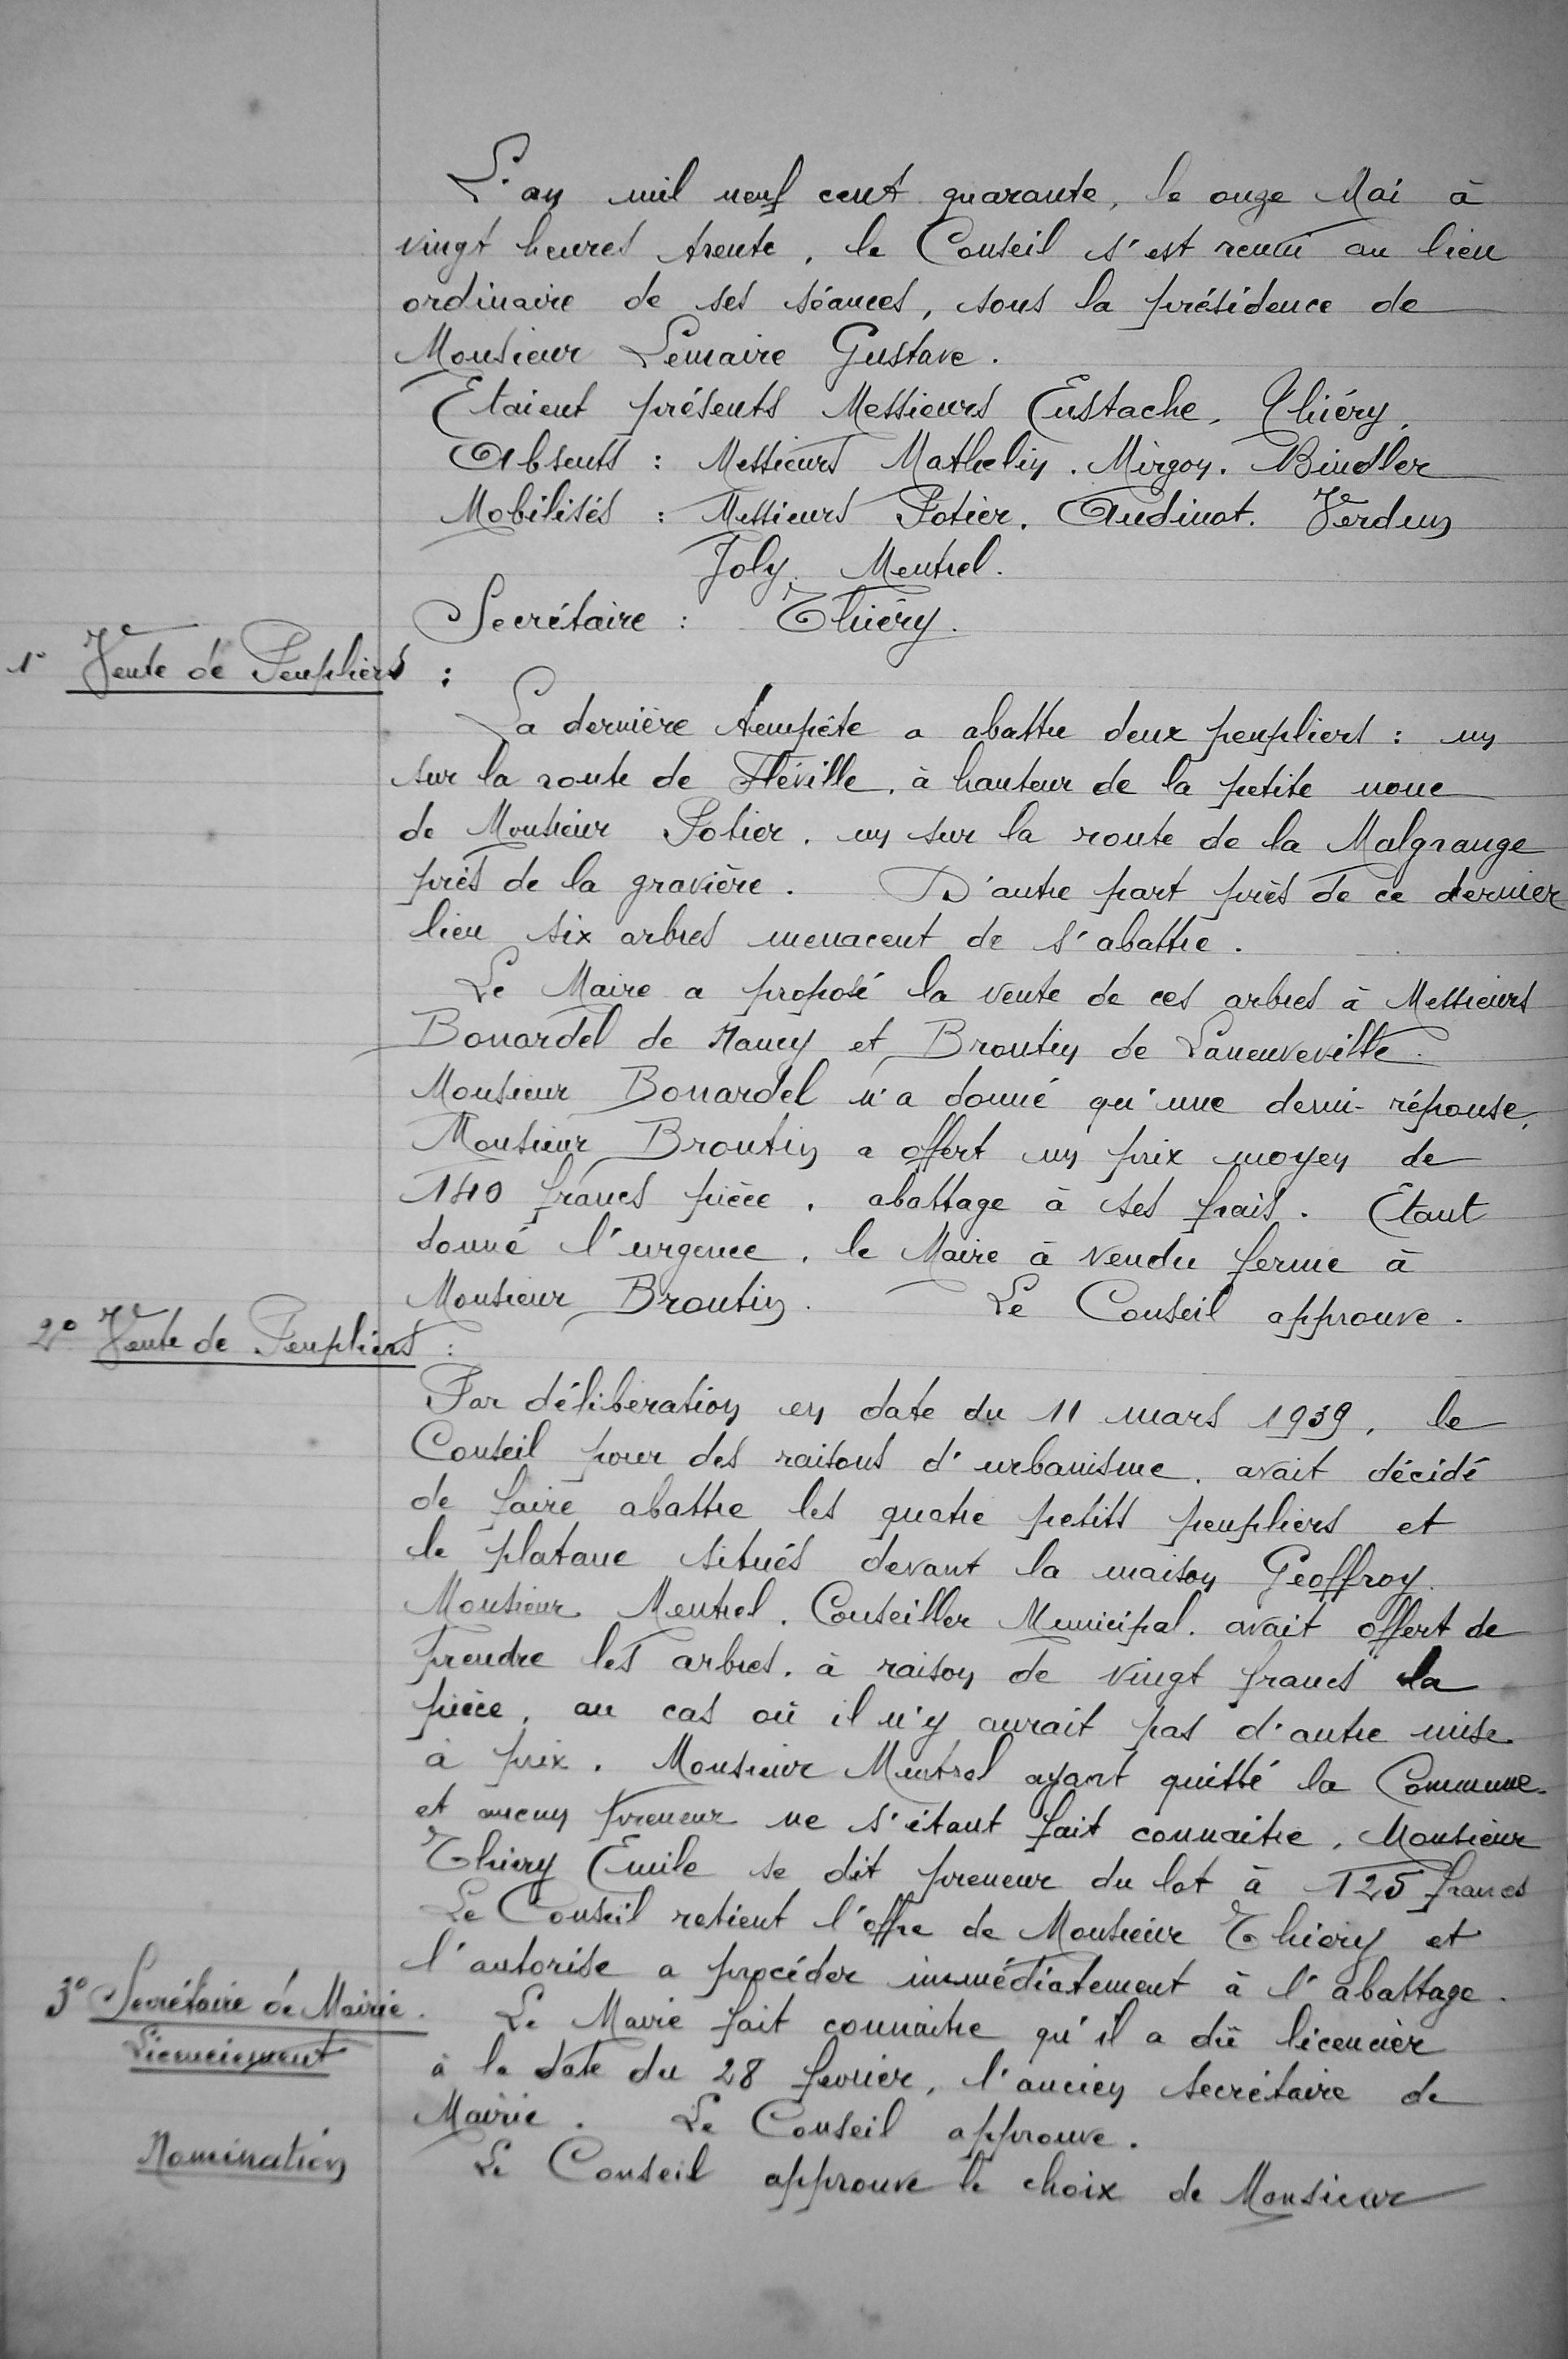 L'an mil neuf cent quarante, le onze Mai à
vingt heures trente, le Conseil s'est réuni au lieu
ordinaire de ses séances, sous la présidence de
Monsieur Lemaire Gustave.
Etaient présents Messieurs Eustache, Thiéry,
Absents : Messieurs Mathelin. Mirgon. Bindler
Mobilisés : Messieurs Potier, Audinot. Verdun
Joly. Mentrel.
Secrétaire : Thiéry.
1° Vente de Peupliers :
La dernière tempête a abattu deux peupliers : un
sur la route de Fléville, à hauteur de la petite noue
de Monsieur Potier, un sur la route de la Malgrange
près de la gravière. D'autre part près de ce dernier
lieu six arbres menacent de s'abattre.
Le Maire a proposé la vente de ces arbres à Messieurs
Bonardel de Nancy et Broutin de Laneuveville.
Monsieur Bonardel n'a donné qu'une demi-réponse,
Monsieur Broutin a offert un prix moyen de
140 francs pièce, abattage à ses frais. Etant
donné l'urgence, le Maire à vendu ferme à
Monsieur Broutin. Le Conseil approuve.
2° Vente de Peupliers :
Par délibération en date du 11 mars 1939, le
Conseil pour des raisons d'urbanisme, avait décidé
de faire abattre les quatre petits peupliers et
le platane situés devant la maison Geoffroy.
Monsieur Mentrel, Conseiller Municipal, avait offert de
prendre les arbres, à raison de vingt francs la
pièce, au cas où il n'y aurait pas d'autre mise
à prix. Monsieur Mentrel ayant quitté la Commune
et aucun preneur ne s'étant fait connaitre, Monsieur
Thiéry Emile se dit preneur du lot à 125 francs
Le Conseil retient l'offre de Monsieur Thiéry et
l'autorise a procéder immédiatement à l'abattage.
3° Secrétaire de Mairie.
Licenciement
Le Maire fait connaitre qu'il a dû licencier
à la date du 28 février, l'ancien secrétaire de
Mairie. Le Conseil approuve.
Nomination
Le Conseil approuve le choix de Monsieur